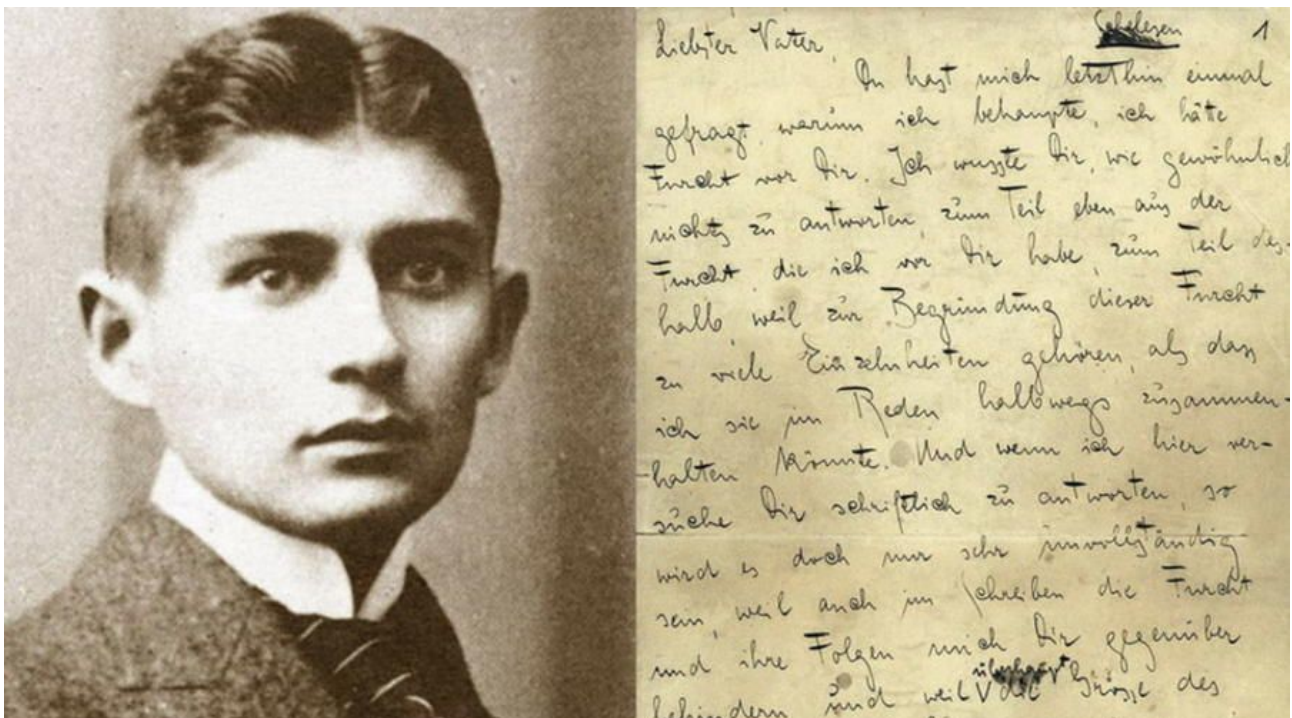 Schelesen 1
Liebster Vater,
Du hast mich letzthin einmal
gefragt, warum ich behaupte, ich hätte
Furcht vor Dir. Ich wusste Dir, wie gewöhnlich
nichts zu antworten, zum Teil eben aus der
Furcht, die ich vor Dir habe, zum Teil des-
halb, weil zur Begründung dieser Furcht
zu viele Einzelnheiten gehören, als dass
ich sie im Reden halbwegs zusammen-
halten könnte. Und wenn ich hier ver-
suche Dir schriftlich zu antworten, so
wird es doch nur sehr unvollständig
sein, weil auch im Schreiben die Furcht
und ihre Folgen mich Dir gegenüber
behindern und weil überhaupt die Grösse des